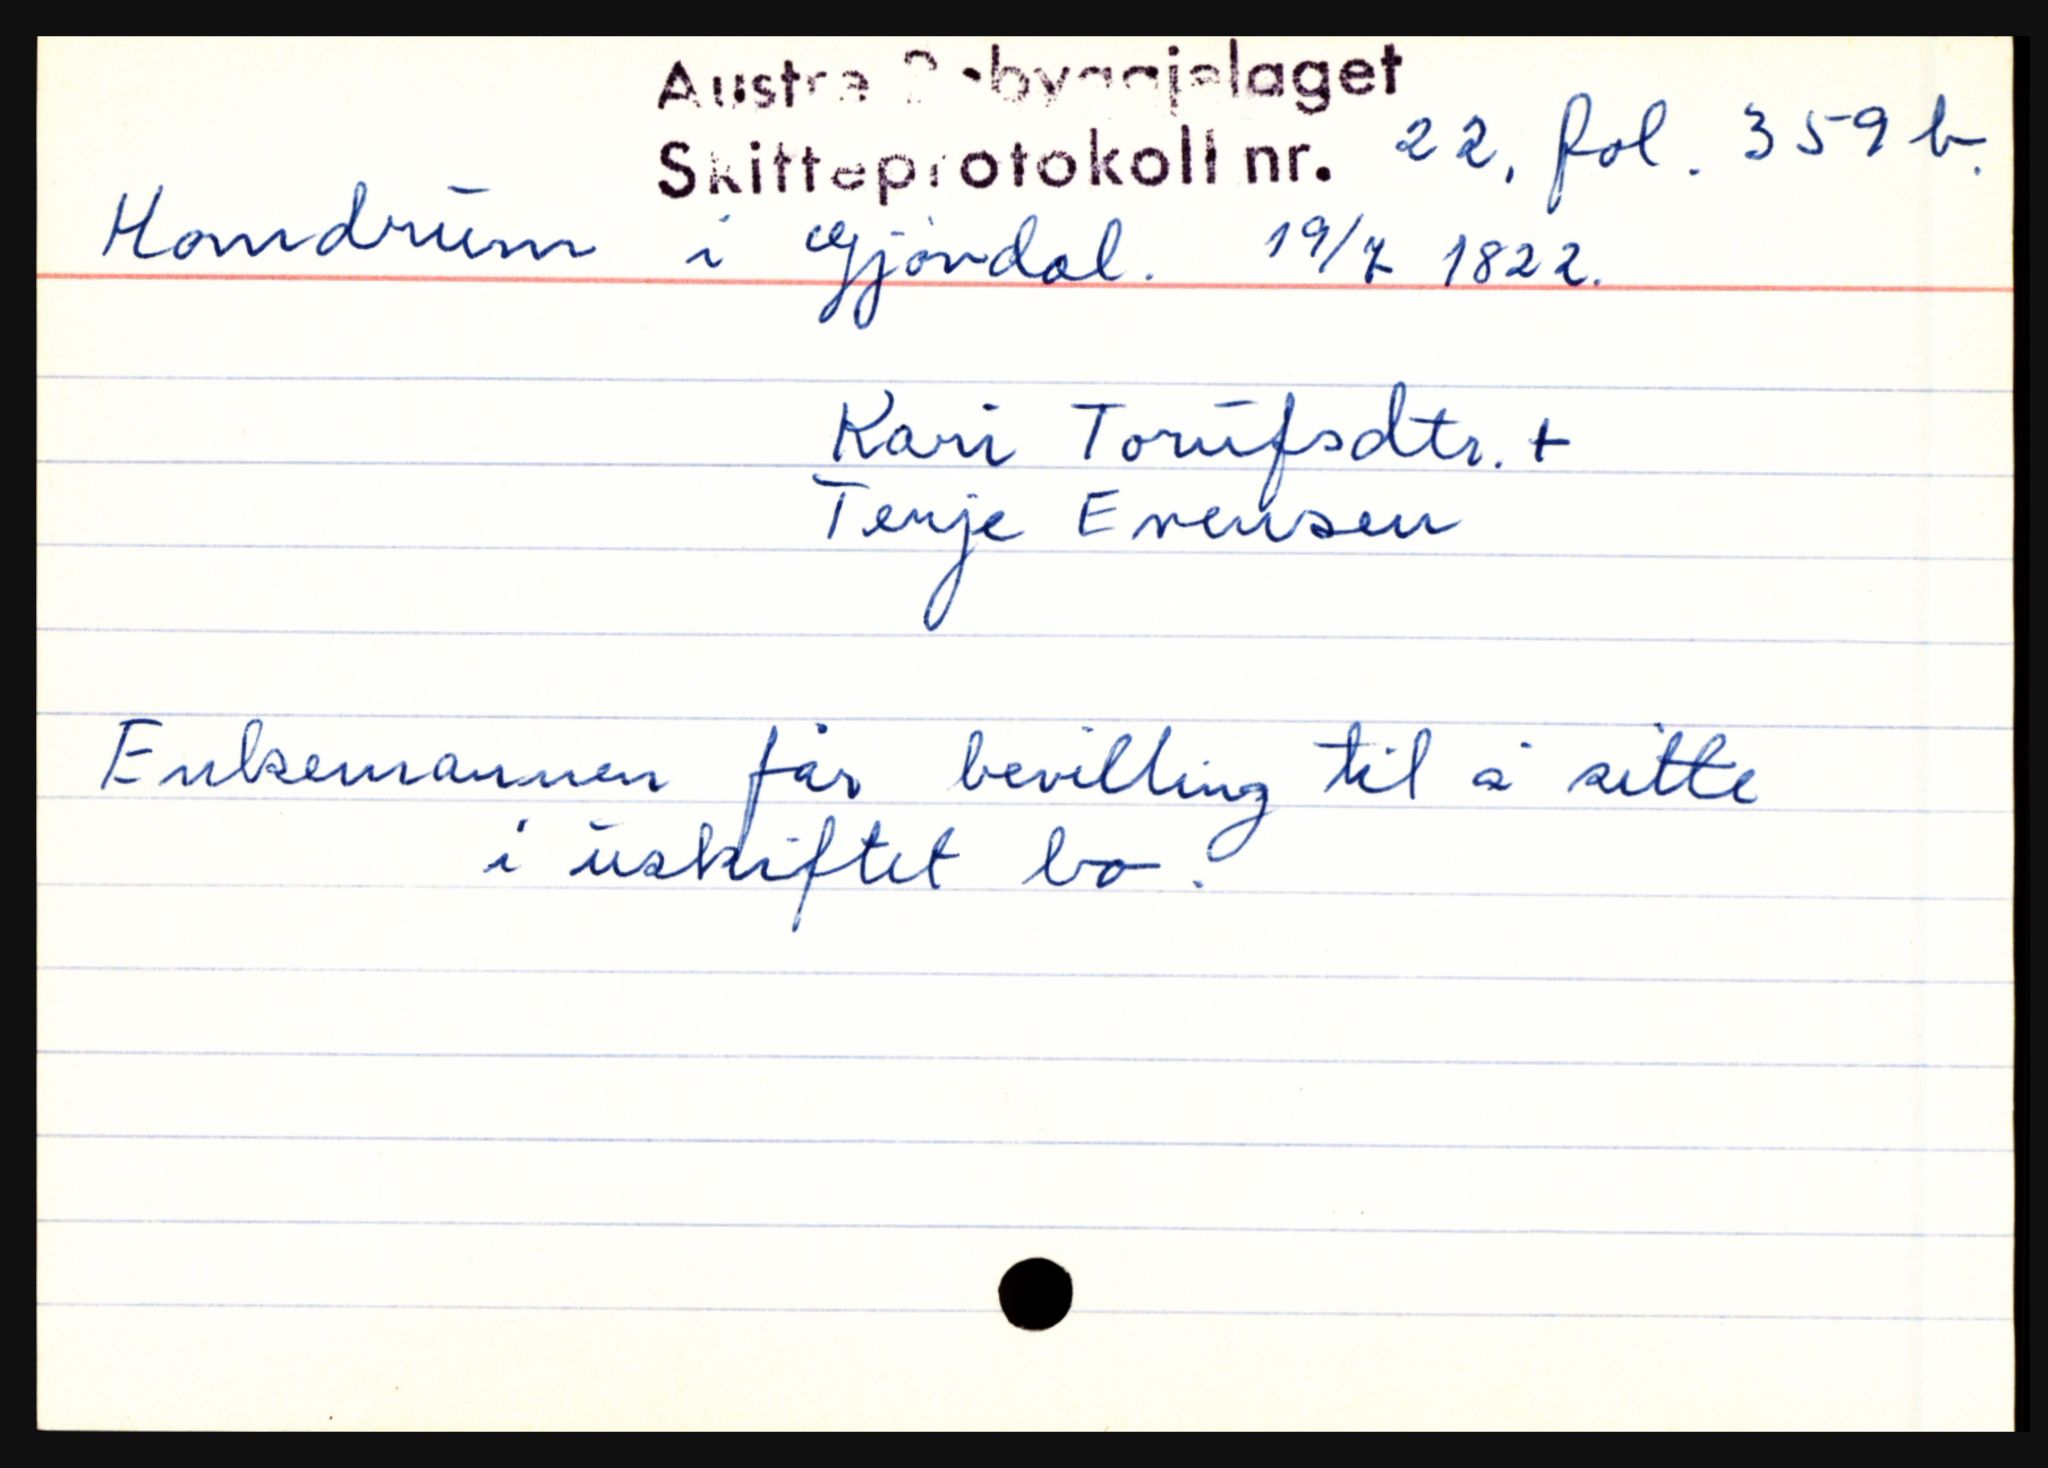 Austre Råbyggjelaget
Skifteprotokoll nr. 22, fol. 359 b.
Homdrum i Gjøvdal. 19/7 1822.
Kari Torufsdtr. +
Terje Evensen
Enkemannen får bevilling til å sitte
i uskiftet bo.